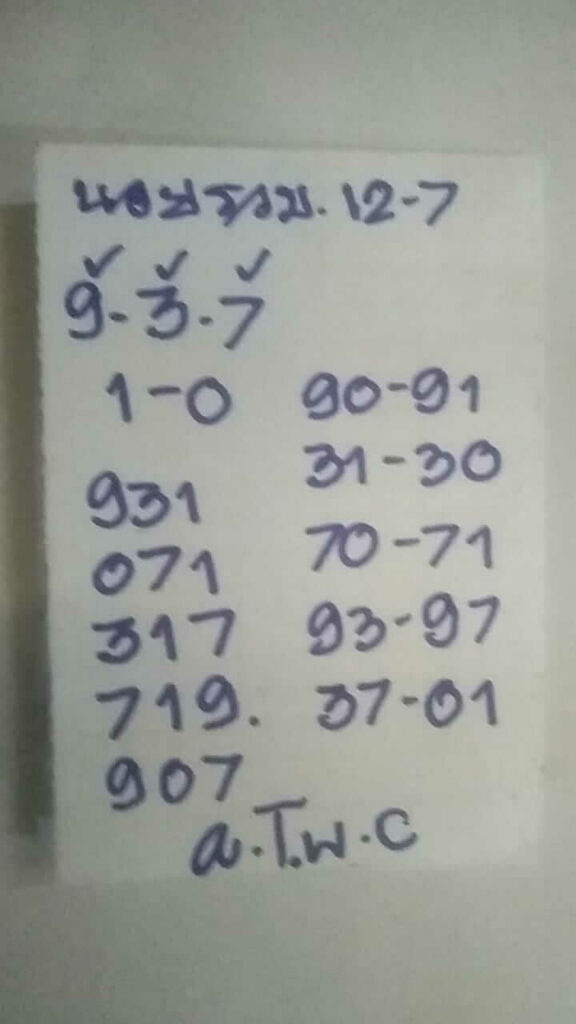 นอยรวม. 12-7
9-3-7
1-0 90-91
31-30
931
071 70-71
317 93-97
719. 37-01
907
a.T.พ.C